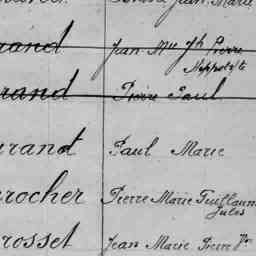 Jean Marie
rand Jean Mie Jh Pierre
Hippolyte
rand Pierre Paul
urand Paul Marie
rocher Pierre Marie Guillaume
Jules
rosset Jean Marie Pierre